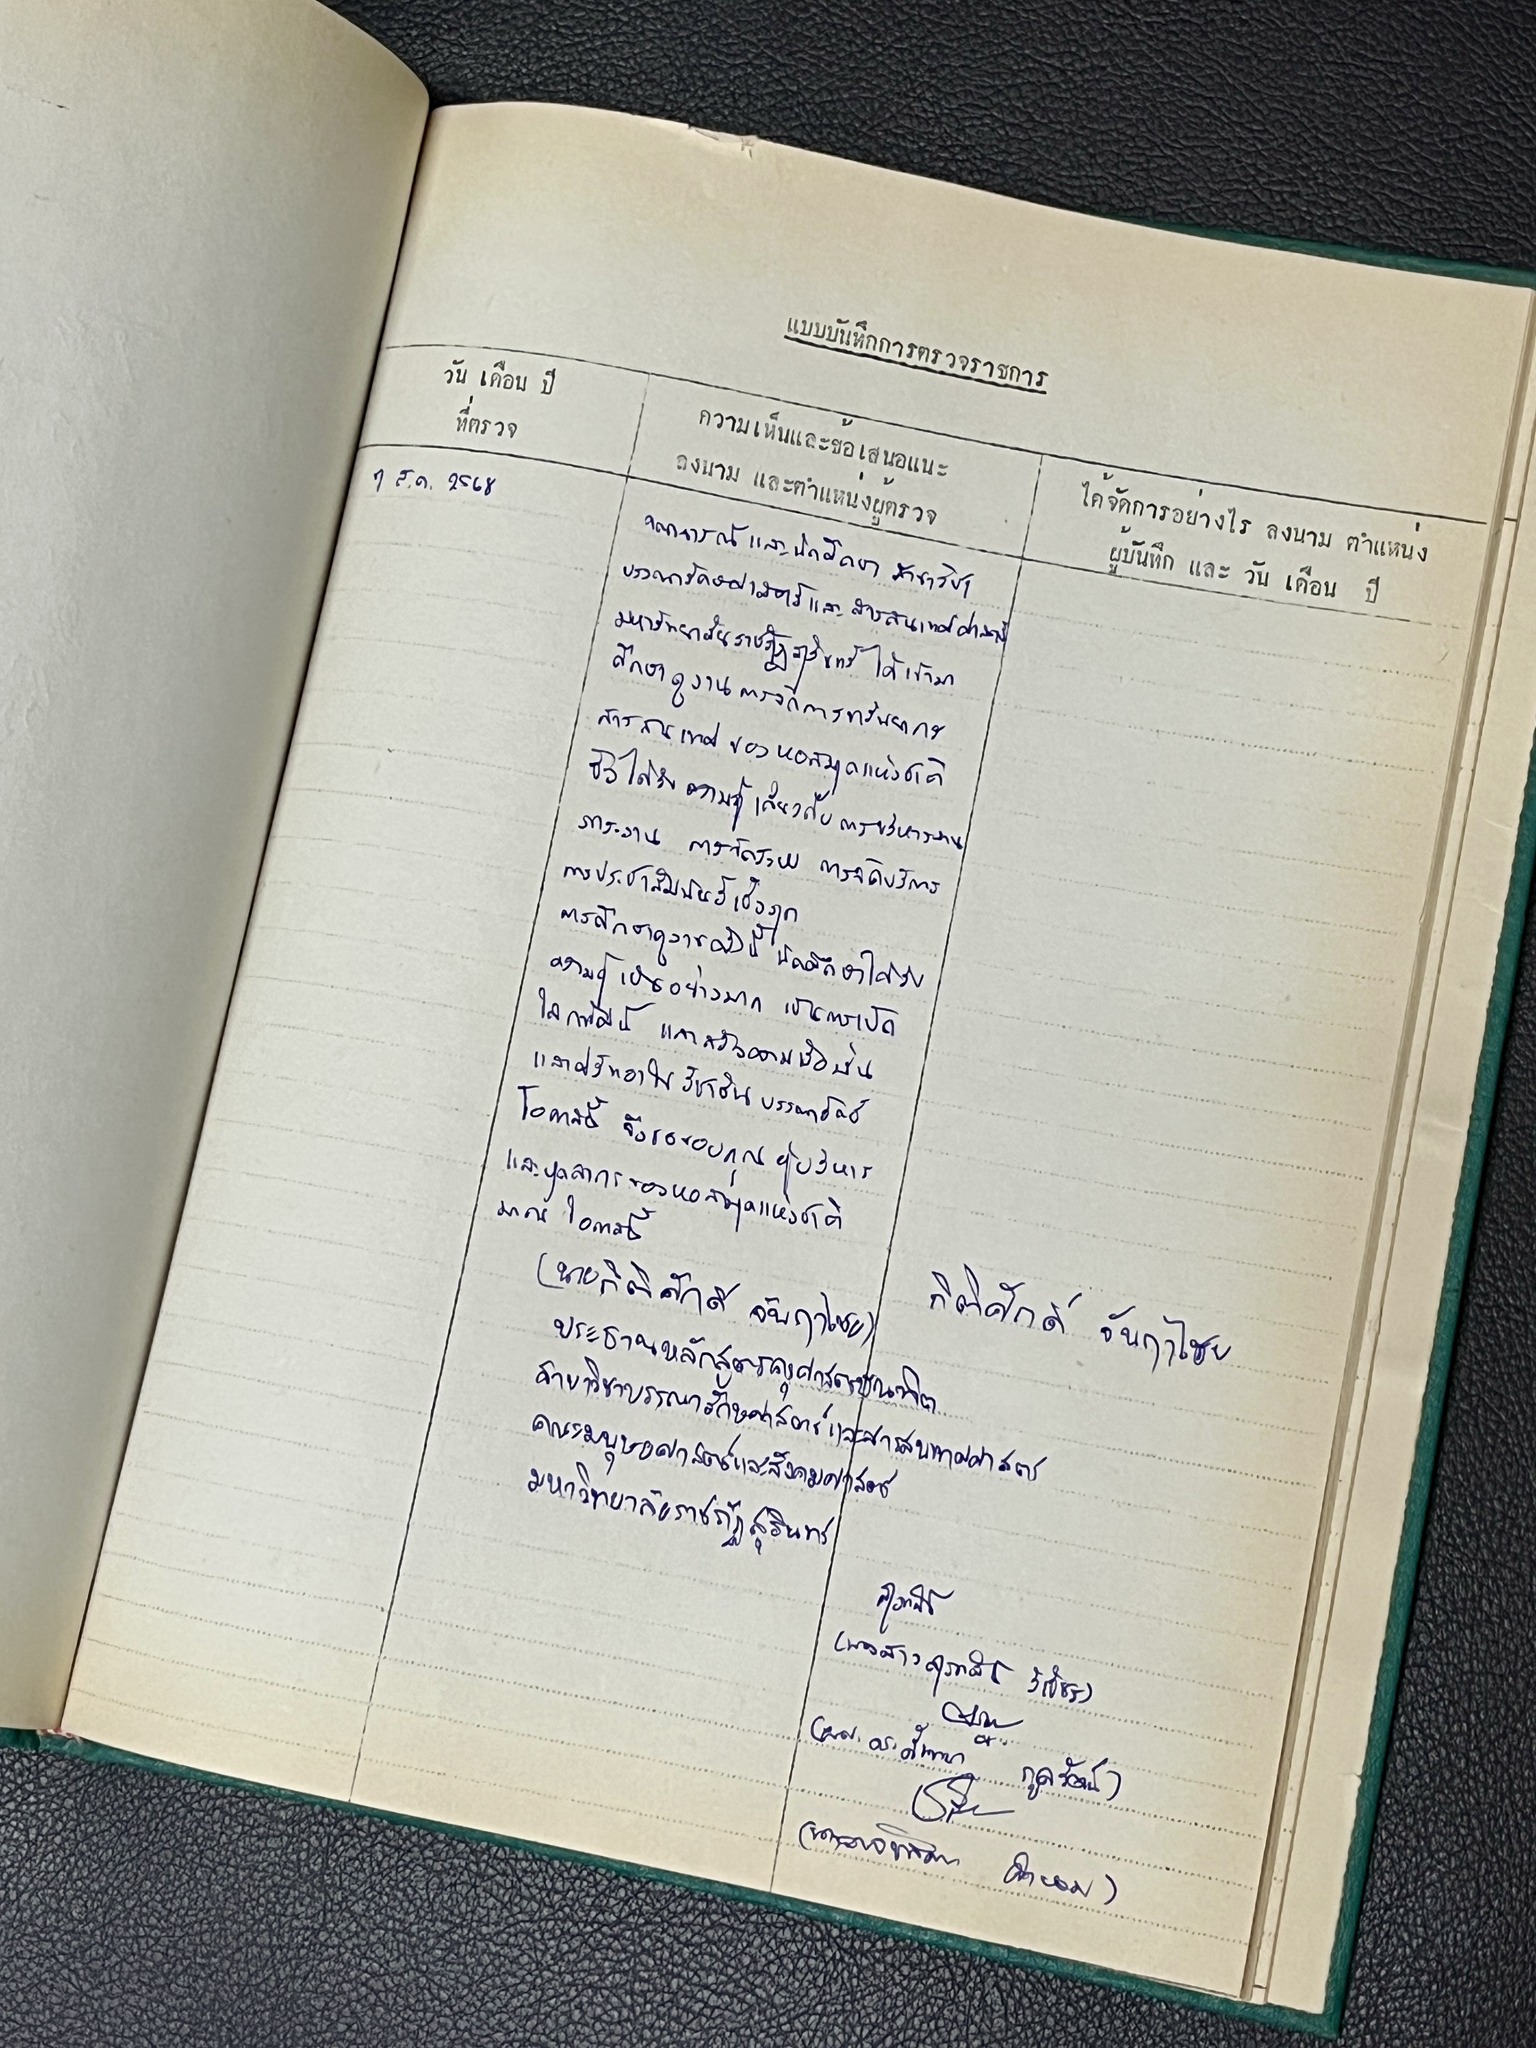 แบบบันทึกการตรวจราชการ
วัน เดือน ปี
ที่ตรวจ
ความเห็นและข้อเสนอแนะ
ลงนาม และตำแหน่งผู้ตรวจ
ได้จัดการอย่างไร ลงนาม ตำแหน่ง
ผู้บันทึก และ วัน เดือน ปี
๗ ส.ค. ๒๕๖๘
คณาจารย์ และนักศึกษา สาขาวิชา
บรรณารักษศาสตร์และสารสนเทศศาสตร์
มหาวิทยาลัยราชภัฏสุรินทร์ ได้เข้ามา
ศึกษาดูงาน การจัดการทรัพยากร
สารสนเทศ ของหอสมุดแห่งชาติ
ซึ่งได้รับ ความรู้ เกี่ยวกับ การบริหารงาน
ภาระงาน การจัดระบบ การจัดบริการ
การประชาสัมพันธ์เชิงรุก
การศึกษาดูงานครั้งนี้ นักศึกษาได้รับ
ความรู้ เป็นอย่างมาก เป็นการเปิด
โลกทัศน์ และสร้างความเชื่อมั่น
และศรัทธาใน วิชาชีพ บรรณารักษ์
โอกาสนี้ จึงขอขอบคุณ ผู้บริหาร
และบุคลากร ของหอสมุดแห่งชาติ
มา ณ โอกาสนี้
(นายกิติศักดิ์ จันฤาไชย)
กิติศักดิ์ จันฤาไชย
ประธานหลักสูตรครุศาสตรบัณฑิต
สาขาวิชาบรรณารักษศาสตร์และสารสนเทศศาสตร์
คณะมนุษยศาสตร์และสังคมศาสตร์
มหาวิทยาลัยราชภัฏสุรินทร์
(นางสาว
(ผศ. ดร.